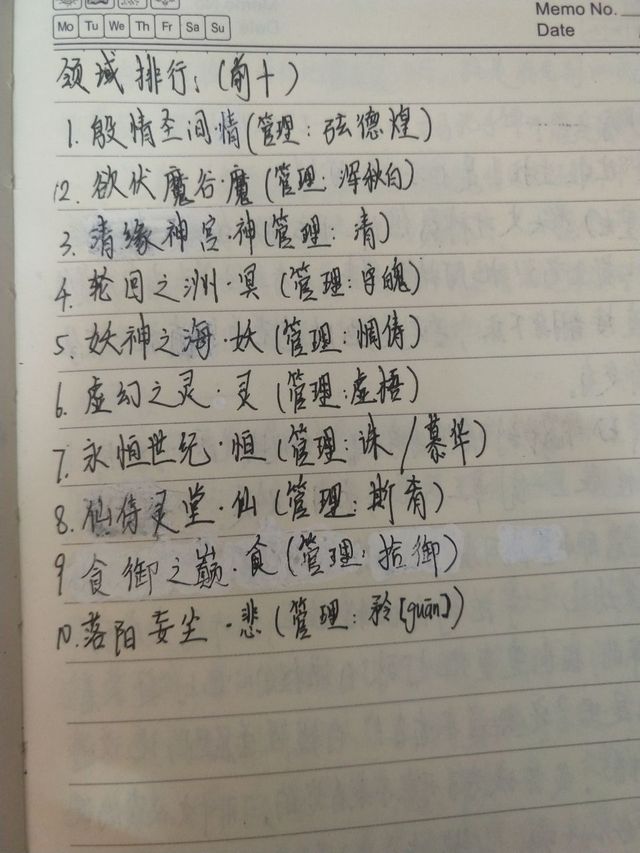 Memo No.
Mo Tu We Th Fr Sa Su
Date
领域排行：(前十)
1. 殷情圣间·情(管理：弦德煌)
2. 欲伏魔谷·魔(管理：浑秋白)
3. 清缘神宫·神(管理：清)
4. 轮回之洲·冥(管理：宇魄)
5. 妖神之海·妖(管理：惆倩)
6. 虚幻之灵·灵(管理：虚捂)
7. 永恒世纪·恒(管理：诛/慕华)
8. 仙侍灵堂·仙(管理：斯肴)
9 食御之巅·食(管理：拾御)
10. 落阳妄尘·悲(管理：矜[guān])